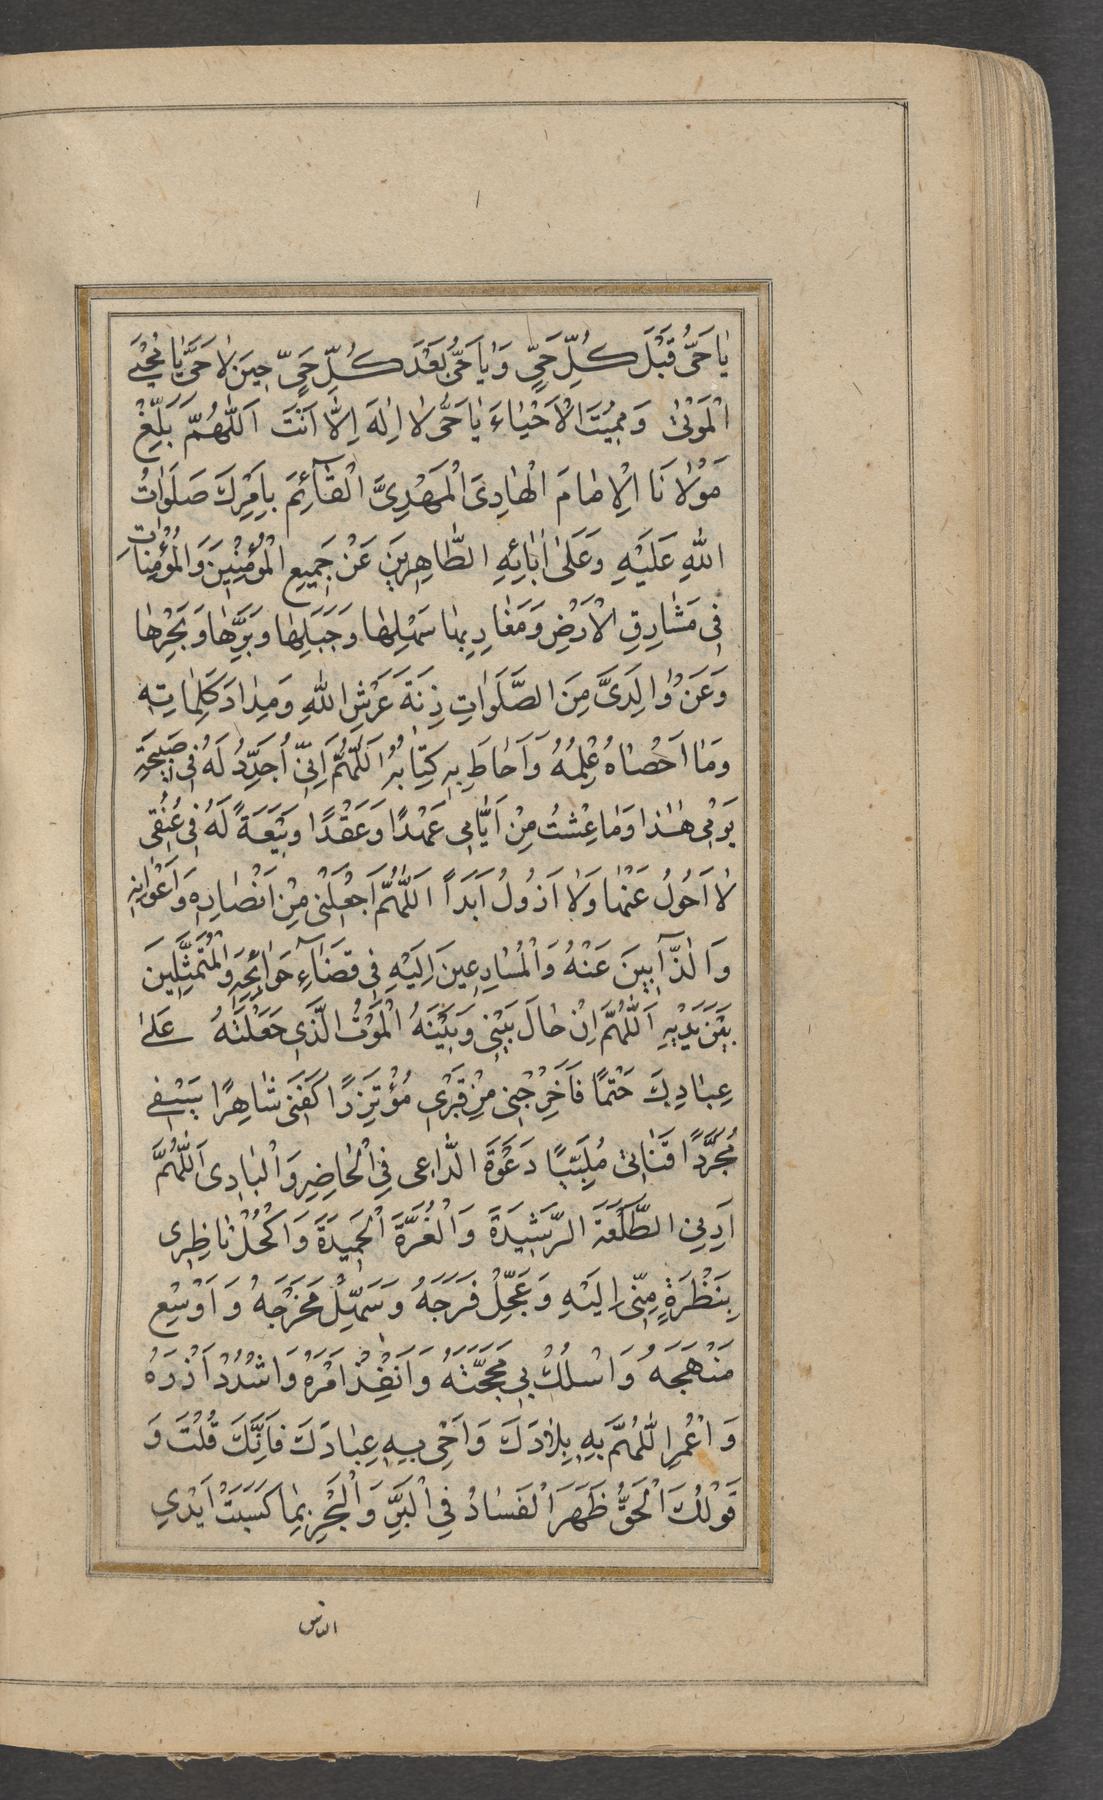 يٰا حَىُّ قَبْلَ كُلِّ حَىٍّ وَيٰا حَىُّ بَعْدَ كُلِّ حَىٍّ حِينَ لٰا حَىَّ يٰا مُحْيِىَ
الْمَوْتىٰ وَ مُمِيتَ الْاَحْيٰاءَ يٰا حَىُّ لٰا اِلٰهَ اِلّٰا اَنْتَ اَللّٰهُمَّ بَلِّغْ
مَوْلٰانَا الْاِمٰامَ الْهٰادِىَ الْمَهْدِىَّ الْقٰآئِمَ بِاَمْرِكَ صَلَوٰاتُ
اللّٰهِ عَلَيْهِ وَعَلىٰ اٰبٰائِهِ الطّٰاهِرِينَ عَنْ جَمِيعِ الْمُؤْمِنِينَ وَالْمُؤْمِنٰاتِ
فِى مَشٰارِقِ الْاَرْضِ وَمَغٰارِبِهٰا سَهْلِهٰا وَجَبَلِهٰا وَبَرِّهٰا وَبَحْرِهٰا
وَعَنْ وٰالِدَىَّ مِنَ الصَّلَوٰاتِ زِنَةَ عَرْشِ اللّٰهِ وَمِدٰادَ كَلِمٰاتِهِ
وَمٰا اَحْصٰاهُ عِلْمُهُ وَاَحٰاطَ بِهِ كِتٰابُهُ اَللّٰهُمَّ اِنِّى اُجَدِّدُ لَهُ فِى صَبِيحَةِ
يَوْمِى هٰذٰا وَمٰا عِشْتُ مِنْ اَيّٰامِى عَهْدًا وَعَقْدًا وَبَيْعَةً لَهُ فِى عُنُقِى
لٰا اَحُولُ عَنْهٰا وَلٰا اَزُولُ اَبَدًا اَللّٰهُمَّ اجْعَلْنِى مِنْ اَنْصٰارِهِ وَاَعْوٰانِهِ
وَالذّٰآبِّينَ عَنْهُ وَالْمُسٰارِعِينَ اِلَيْهِ فِى قَضٰآءِ حَوٰائِجِهِ وَالْمُتَمَثِّلِينَ
بَيْنَ يَدَيْهِ اَللّٰهُمَّ اِنْ حٰالَ بَيْنِى وَبَيْنَهُ الْمَوْتُ الَّذِى جَعَلْتَهُ عَلىٰ
عِبٰادِكَ حَتْمًا فَاَخْرِجْنِى مِنْ قَبْرِى مُؤْتَزِرًا كَفَنِى شٰاهِرًا سَيْفِى
مُجَرَّدًا قَنٰاتِى مُلَبِّيًا دَعْوَةَ الدّٰاعِى فِى الْحٰاضِرِ وَالْبٰادِى اَللّٰهُمَّ
اَرِنِى الطَّلْعَةَ الرَّشِيدَةَ وَالْغُرَّةَ الْحَمِيدَةَ وَاكْحُلْ نٰاظِرِى
بِنَظْرَةٍ مِنِّى اِلَيْهِ وَعَجِّلْ فَرَجَهُ وَسَهِّلْ مَخْرَجَهُ وَاَوْسِعْ
مَنْهَجَهُ وَاسْلُكْ بِى مَحَجَّتَهُ وَاَنْفِذْ اَمْرَهُ وَاشْدُدْ اَزْرَهُ
وَاعْمُرِ اللّٰهُمَّ بِهِ بِلٰادَكَ وَاَحْىِ بِهِ عِبٰادَكَ فَاِنَّكَ قُلْتَ وَ
قَوْلُكَ الْحَقُّ ظَهَرَ الْفَسٰادُ فِى الْبَرِّ وَالْبَحْرِ بِمٰا كَسَبَتْ اَيْدِى
الناس